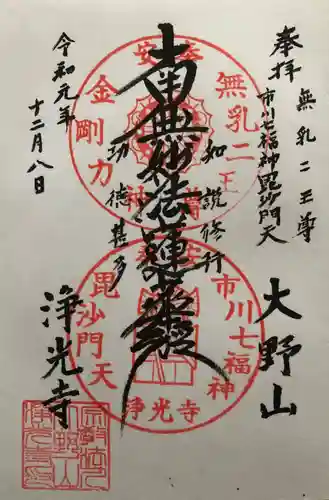 奉拝
無乳二王尊
市川七福神毘沙門天
大野山
南無妙法蓮華経
和讃修行
功徳甚多
令和元年
十二月八日
浄光寺
無乳二王
金剛力
市川七福神
毘沙門天
浄光寺